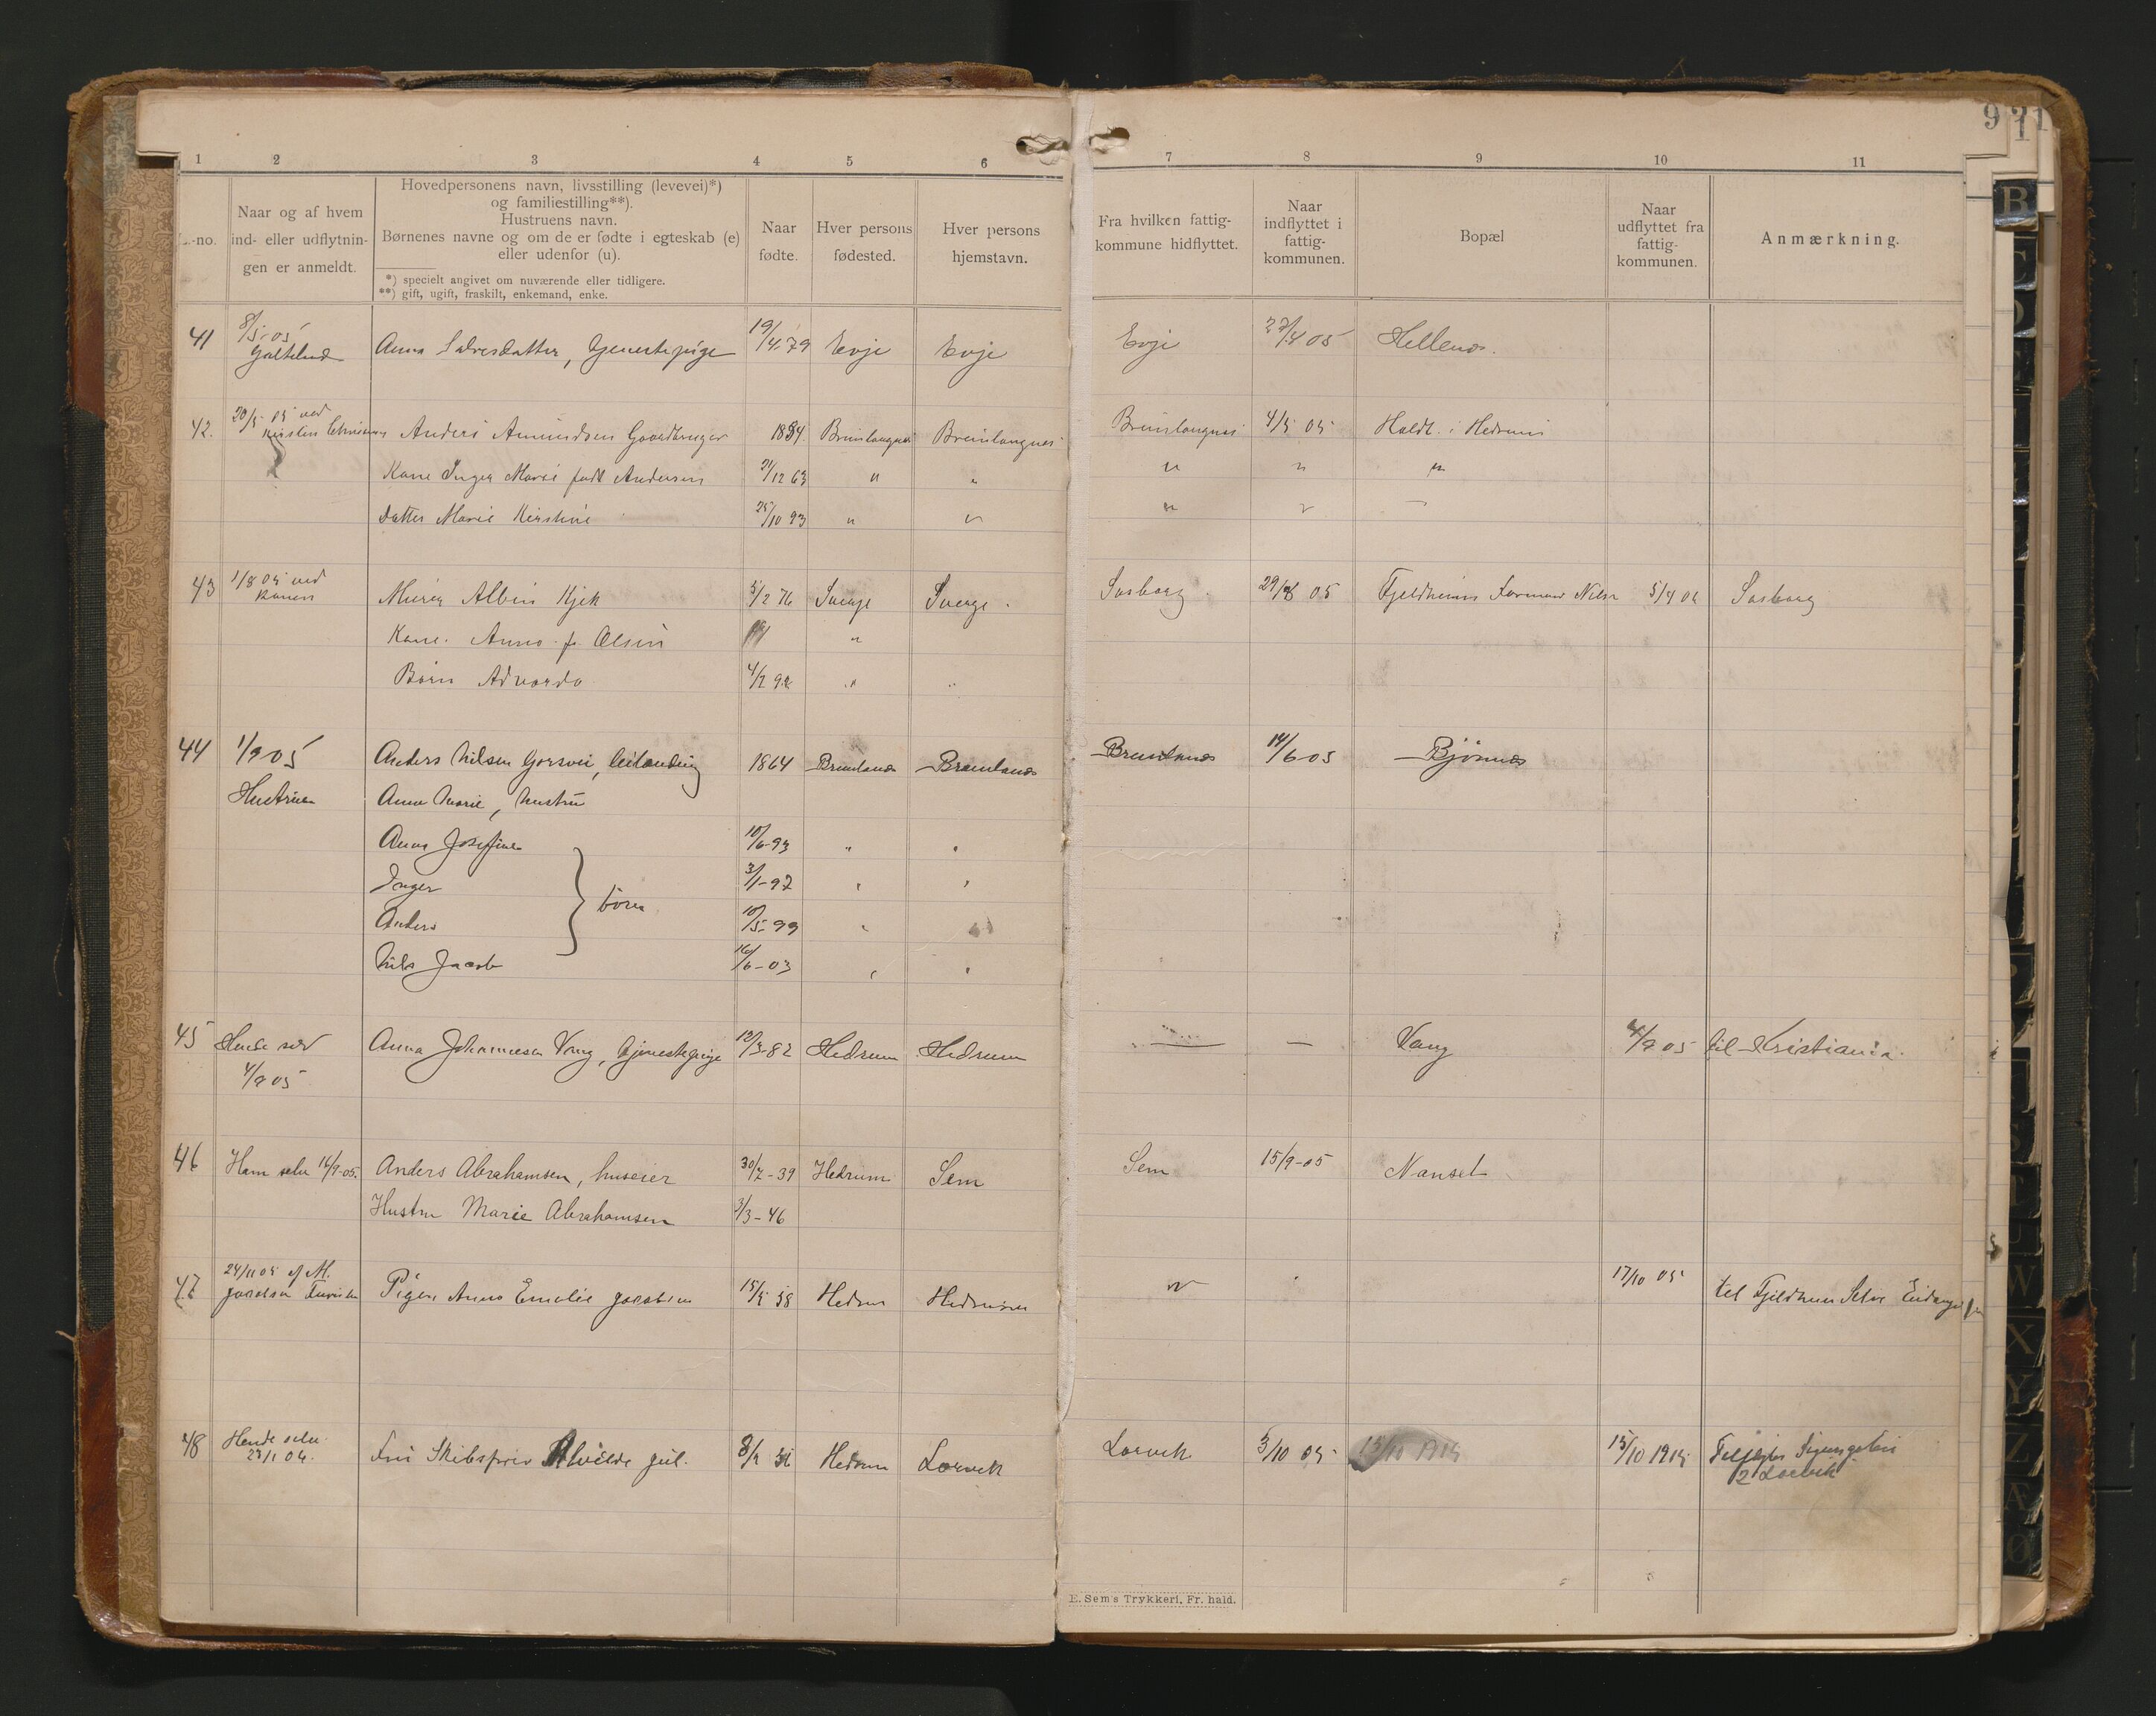 9 21
1 2 3 4 5 6 7 8 9 10 11
L.-no.
Naar og af hvem
ind- eller udflytnin-
gen er anmeldt.
Hovedpersonens navn, livsstilling (levevei)*)
og familiestilling**).
Hustruens navn.
Børnenes navne og om de er fødte i egteskab (e)
eller udenfor (u).
*) specielt angivet om nuværende eller tidligere.
**) gift, ugift, fraskilt, enkemand, enke.
Naar
fødte.
Hver persons
fødested.
Hver persons
hjemstavn.
Fra hvilken fattig-
kommune hidflyttet.
Naar
indflyttet i
fattig-
kommunen.
Bopæl
Naar
udflyttet fra
fattig-
kommunen.
Anmærkning.
41 8/5-05 Anna Salvesdatter, Tjenestepige 19/4-79 Evje Evje Evje 27/4 05
42. 20/5 05 ved Anders Amundsen Gaardbruger Brunlangnes Brunlangnes Brunlangnes 4/5 05 Holdt i Hedrum
Kone Inger Marie født Andersen 21/12 63 " " " " "
Datter Marie Kirstine 25/10 93 " " " "
43 1/8 05 ved Murer Albin Kjek 5/2 76 Sverge Sverge 5/4 06
Konen
Kone Anna f. Olsen "
Børn "
44 1/9 05 Anders Nilsen Gorsvei, 1864 Brunlanes Brunlanes Brunlanes 14/6-05 Bjørnnes
Hustruen Anna Marie, hustru
Anna Josefine 10/6-93 " "
Inger 3/1-97 " "
børn
Anders 10/5-99 "
Nils Jacob 16/6-03 " "
45 Hende selv Anna Johannesen Vang, tjenestepige 12/3-82 Hedrum Hedrum — — Vang 4/9 05 til Kristiania.
4/9 05
46 Ham selv 16/9-05. Anders Abrahamsen, huseier 30/7-39 Hedrum Sem Sem 15/9-05 Nanset
Hustru Marie Abrahamsen 3/3-46
47 24/11 05 af M. Pigen Anna Emelie Jacobsen Hedrum Hedrum 17/10 05
Jacobsen
48 Hende selv Hedrum Larvik Larvik 3/10 05 15/10 1915 15/10 1915
2 Larvik
E. Sem's Trykkeri, Fr. hald.
B
C
D
W
X
Y
Z
Æ
Ø